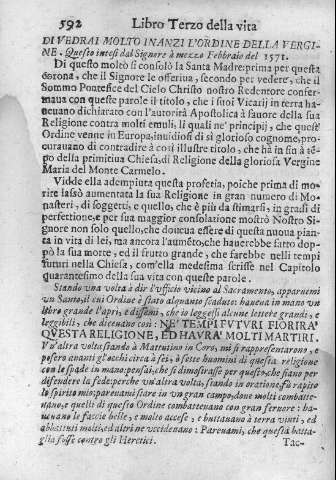 592 Libro Terzo della vita
DI VEDRAI MOLTO INANZI L'ORDINE DELLA VERGI-
NE. Questo intesi dal Signore à mezzo Febbraio del 1571.
Di questo molto si consolò la Santa Madre: prima per questa
corona, che il Signore le offeriua, secondo per vedere, che il
Sommo Pontefice del Cielo Christo nostro Redentore confer-
maua con queste parole il titolo, che i suoi Vicarij in terra ha-
ueuano dichiarato con l'autorità Apostolica à fauore della sua
Religione contra molti emuli, li quali ne' principij, che quest'
Ordine venne in Europa, inuidiosi di sì glorioso cognome, pro-
curauano di contradire à così illustre titolo, che hà in sù à tê-
po della primitiua Chiesa, di Religione della gloriosa Vergine
Maria del Monte Carmelo.
Vidde ella adempiuta questa profetia, poiche prima di mo-
rire lasciò aumentata la sua Religione in gran numero di Mo-
nasteri, di soggetti, e quello, che è più da stimarsi, in grasi di
perfettione, e per sua maggior consolazione mostrò Nostro Si-
gnore non solo quello, che doueua essere di questa nuoua pian-
ta in vita di lei, ma ancora l'aumēto, che hauerebbe fatto dop-
pò la sua morte, ed il frutto grande, che farebbe nelli tempi
futuri nella Chiesa, com'ella medesima scrisse nel Capitolo
quarantesimo della sua vita con queste parole.
Stando vna volta à dir l'vfficio vicino al Sacramento, apparuemi
vn Santo, il cui Ordine è stato alquanto scaduto: haueua in mano vn
libro grande l'aprì, e dissemi, che io leggessi alcune lettere grandi, e
leggibili, che diceuano così: NE' TEMPI FVTVRI FIORIRA'
QVESTA RELIGIONE, ED HAVRA' MOLTI MARTIRI.
Vn'altra volta stando à Mattutino in Coro, mi si rappresentarono, e
posero auanti gl'occhi circa à sei, ò sette huomini di questa religione
con le spade in mano: pensai, che si dimostrasse per questo, che siano per
difendere la fede: perche vn'altra volta, stando in oratione, fù rapito
lo spirito mio: pareuami stare in vn gran campo, doue molti combatte-
uano, e quelli di questo Ordine combatteuano con gran feruore: ha-
ueuano le faccie belle, e molto accese, e buttauano à terra vinti, ed
abbattuti molti, ed altri ne vccideuano: Pareuami, che questa batta-
glia fosse contro gli Heretici.
Tac-